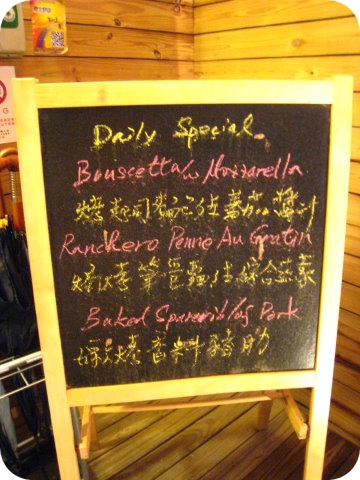 Daily Special
Bruscetta w Mozzarella
烤起司 佐蕃茄醬
Ranchero Penne Au Gratin
焗烤筆管麵佐綜合蔬菜
Baked Spareribs of Pork
焗烤香料豬肋